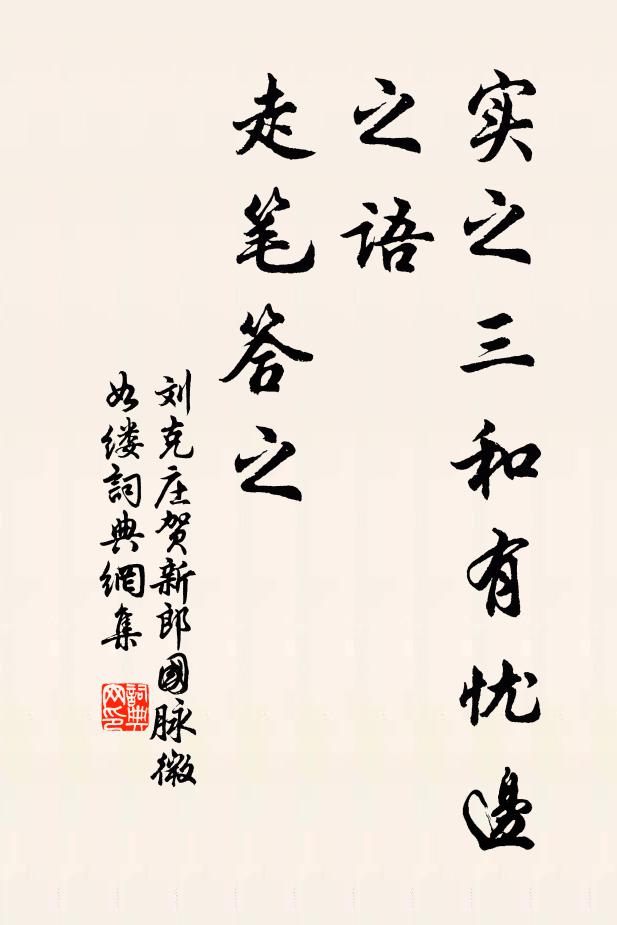 实之三和有忧邊
之语
走笔答之
刘克庄贺新郎國脉微
如缕詞典網集
詞典
网印